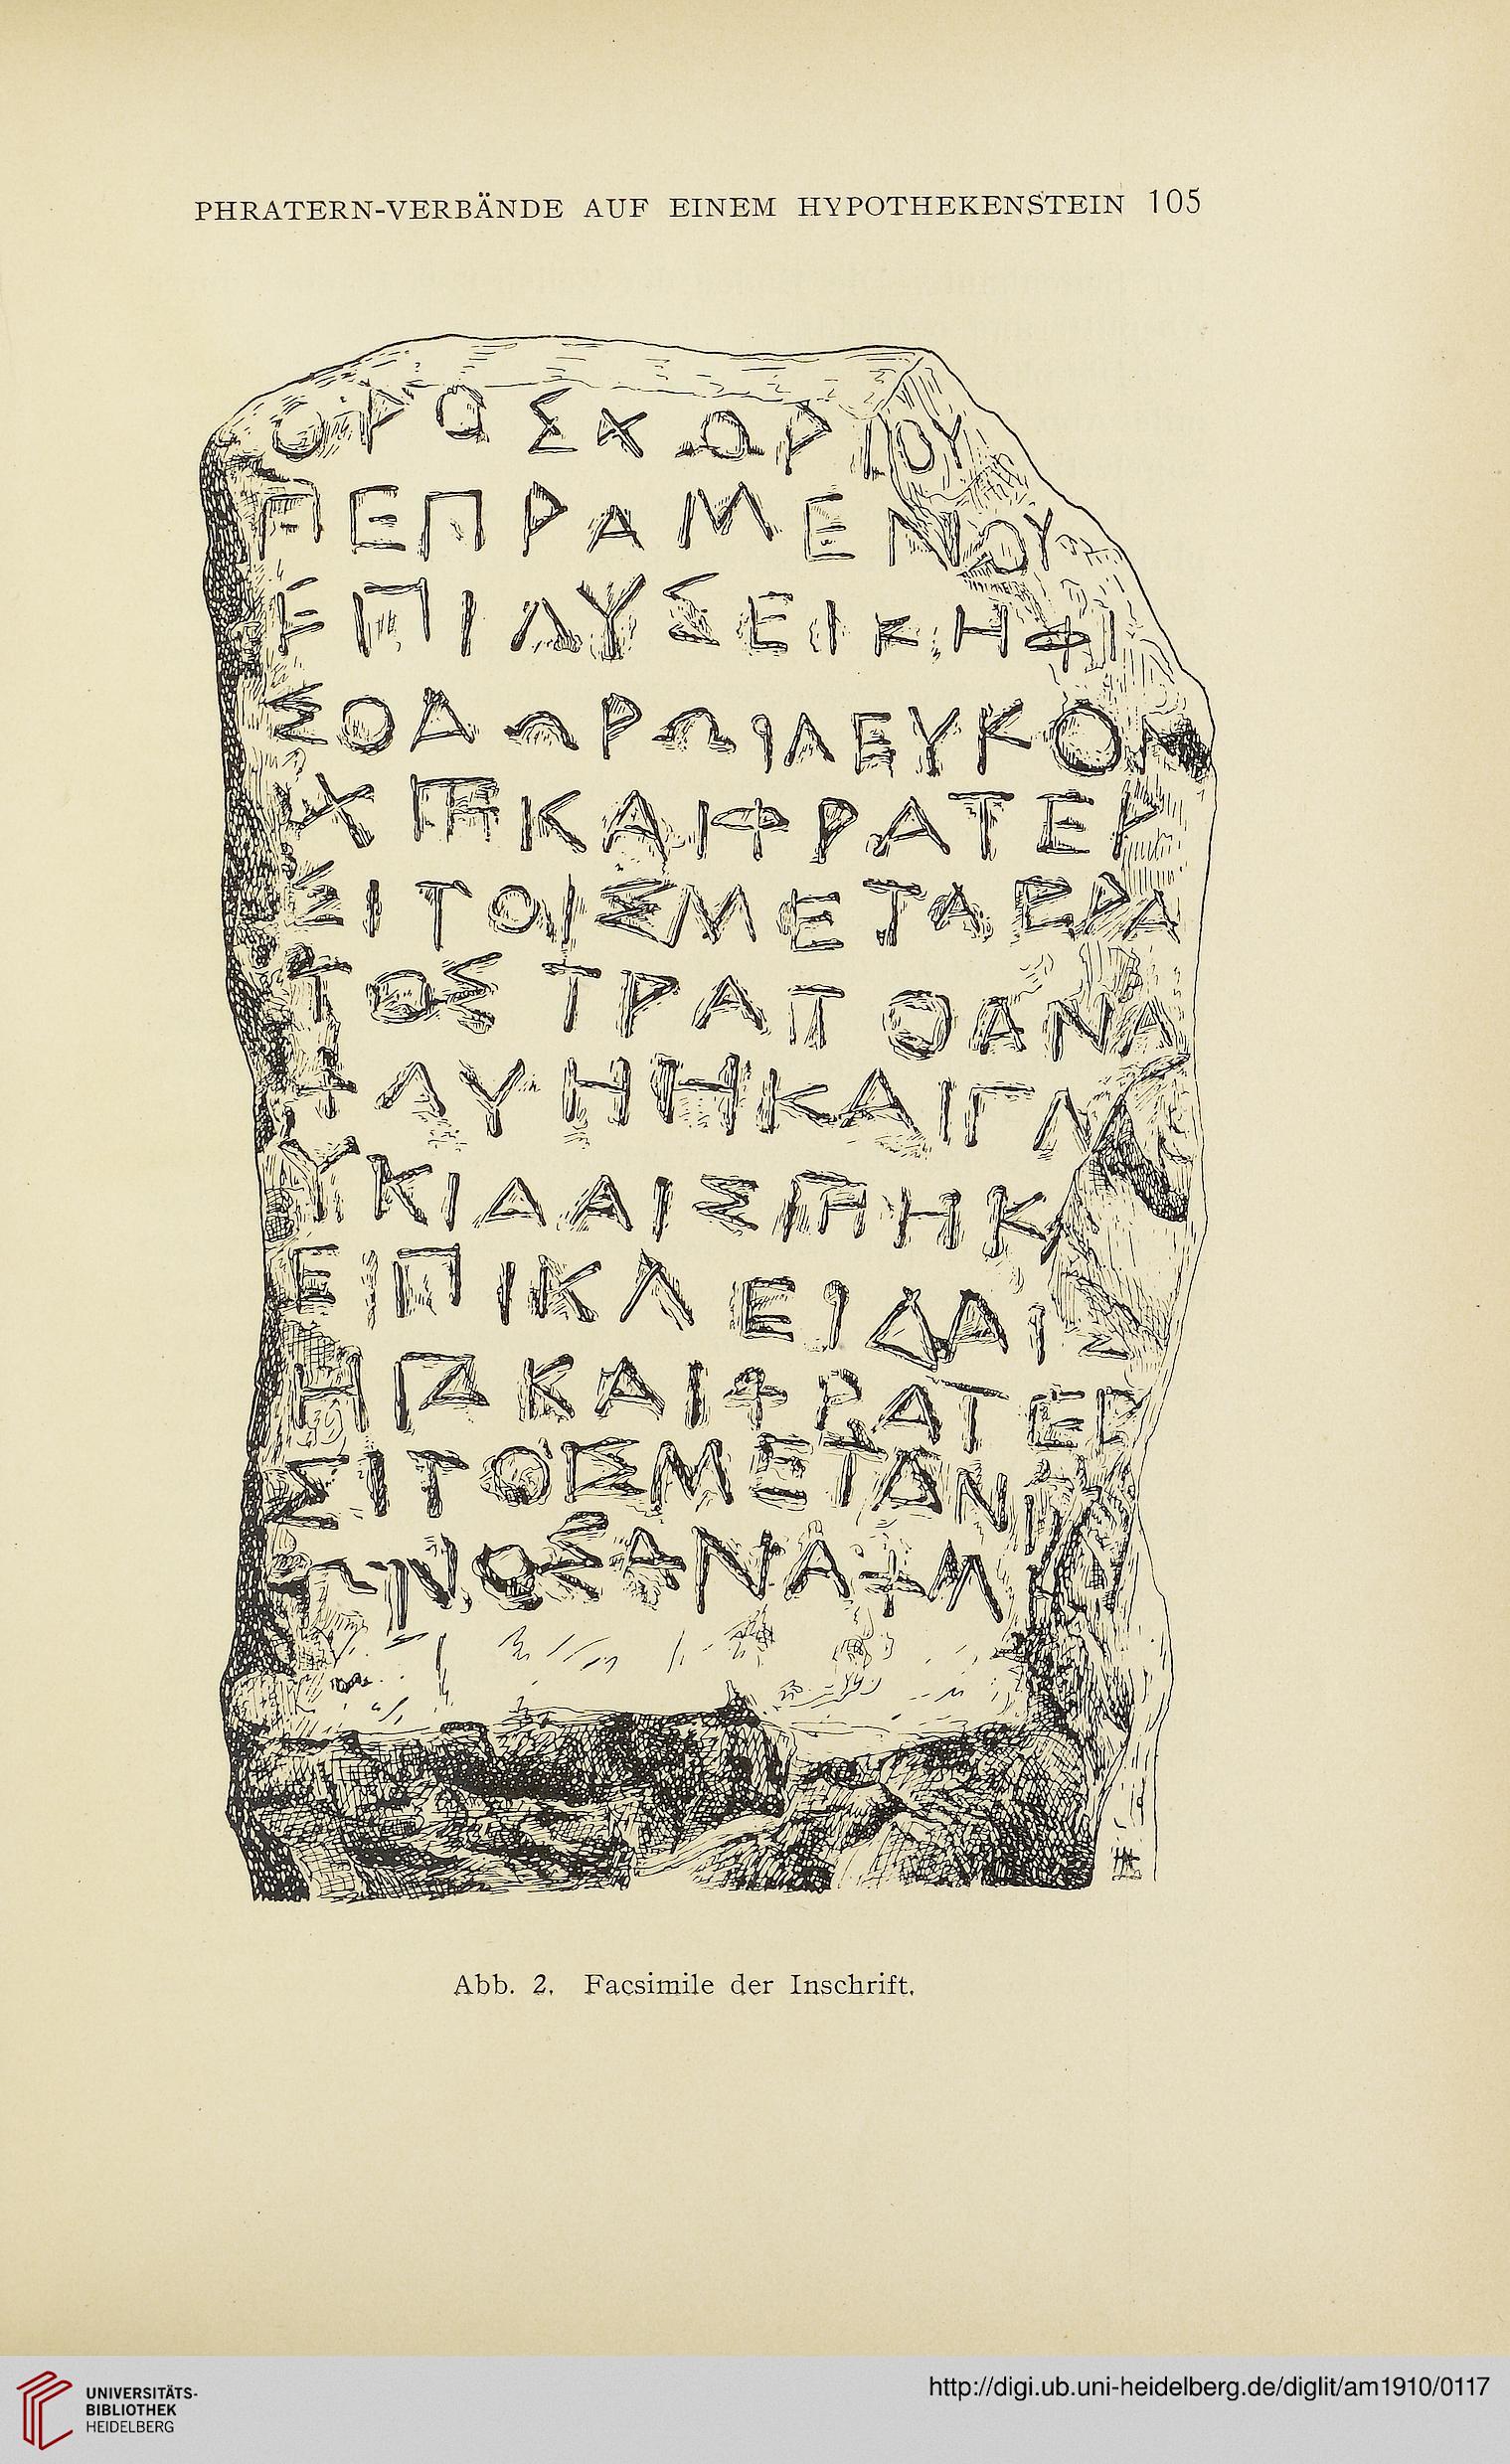 PHRATERN-VERBÄNDE AUF EINEM HYPOTHEKENSTEIN 105
ΟΡΟΣΧΩΡΙΟΥ
ΠΕΠΡΑΜΕΝΟΥ
ΕΠΙΛΥΣΕΙΚΗΦΙ
ΣΟΔΩΡΩΙΛΕΥΚΟΝ
ΧΧ𐅅ΚΑΙΦΡΑΤΕΡ
ΣΙΤΟΙΣΜΕΤΑΕΡΑ
ΤΟΣΤΡΑΤΟΑΝΑ
ΦΛΥΗΧΗΗΚΑΙΓΛΑ
ΥΚΙΔΑΙΣ𐅅ΗΚΑ
ΕΠΙΚΛΕΙΔΑΙΣ
Η𐅄ΚΑΙΦΡΑΤΕΡ
ΣΙΤΟΙΣΜΕΤΑΝΙΚ
ΩΝΟΣΑΝΑΦΛΥ
Abb. 2. Facsimile der Inschrift.
UNIVERSITÄTS-
BIBLIOTHEK
HEIDELBERG
http://digi.ub.uni-heidelberg.de/diglit/am1910/0117